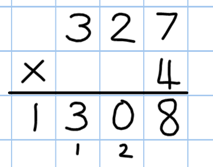 327
× 4
1308
1 2